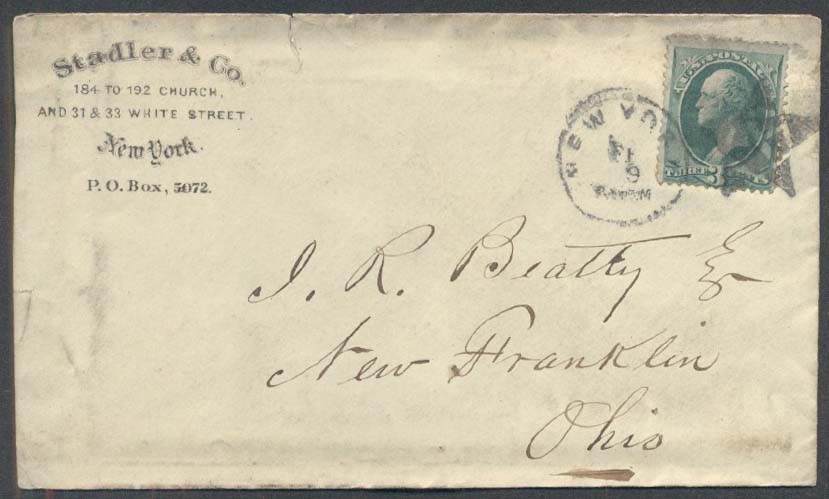 Stadler & Co.
184 TO 192 CHURCH,
AND 31 & 33 WHITE STREET.
New York.
P. O. Box, 5072.
NEW YO
9
U.S. POSTA
THREE 3 CENTS
J. R. Beatty &
New Franklin
Ohio